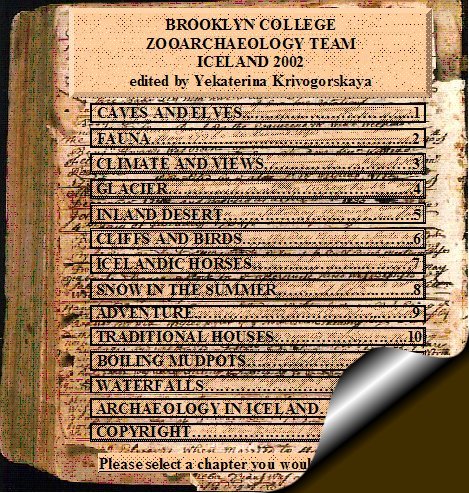 BROOKLYN COLLEGE
ZOOARCHAEOLOGY TEAM
ICELAND 2002
edited by Yekaterina Krivogorskaya
CAVES AND ELVES..............................1
FAUNA..............................2
CLIMATE AND VIEWS..............................3
GLACIER..............................4
INLAND DESERT..............................5
CLIFFS AND BIRDS..............................6
ICELANDIC HORSES..............................7
SNOW IN THE SUMMER..............................8
ADVENTURE..............................9
TRADITIONAL HOUSES..............................10
BOILING MUDPOTS..............................
WATERFALLS..............................
ARCHAEOLOGY IN ICELAND.
COPYRIGHT..............................
Please select a chapter you woul